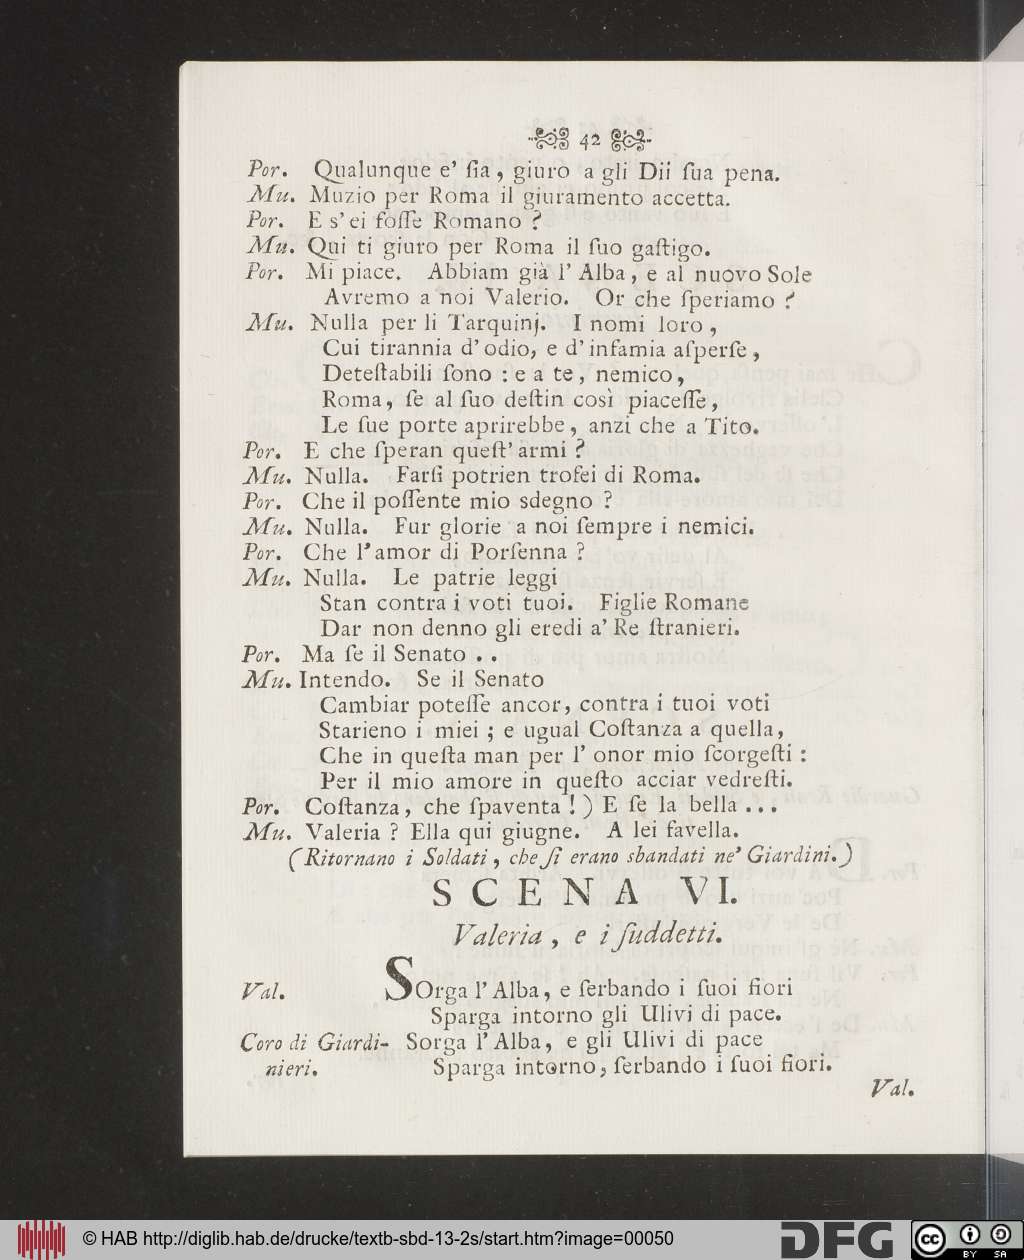 42
Por. Qualunque e' ſia, giuro a gli Dii ſua pena.
Mu. Muzio per Roma il giuramento accetta.
Por. E s' ei foſſe Romano ?
Mu. Qui ti giuro per Roma il ſuo gaſtigo.
Por. Mi piace. Abbiam già l' Alba, e al nuovo Sole
Avremo a noi Valerio. Or che ſperiamo ?
Mu. Nulla per li Tarquinj. I nomi loro,
Cui tirannia d' odio, e d' infamia aſperſe,
Deteſtabili ſono : e a te, nemico,
Roma, ſe al ſuo deſtin così piaceſſe,
Le ſue porte aprirebbe, anzi che a Tito.
Por. E che ſperan queſt' armi ?
Mu. Nulla. Farſi potrien trofei di Roma.
Por. Che il poſſente mio sdegno ?
Mu. Nulla. Fur glorie a noi ſempre i nemici.
Por. Che l'amor di Porſenna ?
Mu. Nulla. Le patrie leggi
Stan contra i voti tuoi. Figlie Romane
Dar non denno gli eredi a' Re ſtranieri.
Por. Ma ſe il Senato . .
Mu. Intendo. Se il Senato
Cambiar poteſſe ancor, contra i tuoi voti
Starieno i miei ; e ugual Coſtanza a quella,
Che in queſta man per l' onor mio ſcorgeſti :
Per il mio amore in queſto acciar vedreſti.
Por. Coſtanza, che ſpaventa ! ) E ſe la bella ...
Mu. Valeria ? Ella qui giugne. A lei favella.
(Ritornano i Soldati, che ſi erano sbandati ne' Giardini.)
SCENA VI.
Valeria, e i ſuddetti.
Val. SOrga l' Alba, e ſerbando i ſuoi fiori
Sparga intorno gli Ulivi di pace.
Coro di Giardi- Sorga l' Alba, e gli Ulivi di pace
nieri. Sparga intorno, ſerbando i ſuoi fiori.
Val.
© HAB http://diglib.hab.de/drucke/textb-sbd-13-2s/start.htm?image=00050
DFG
cc BY SA